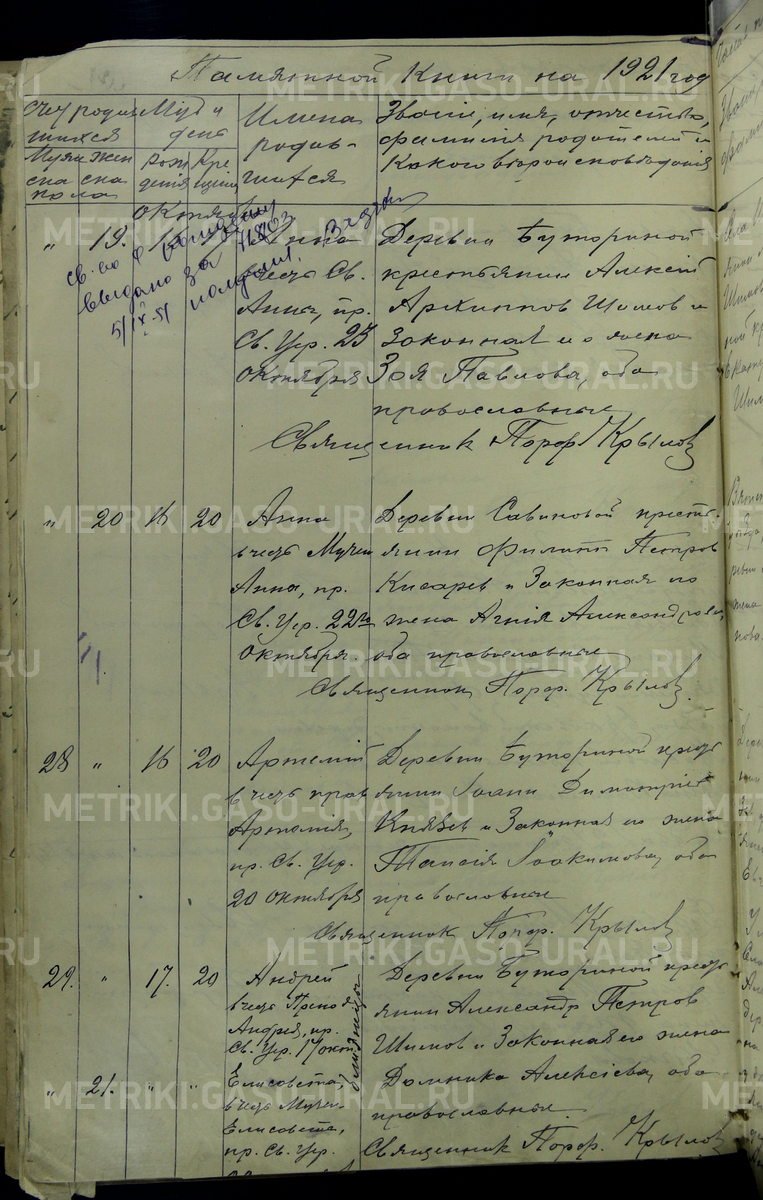 Памятной Книги на 1921 год
Счет родив-
шихся
Муже
ска
Жен
ска
пола
Мѣс. и
день
рож
денія
Кре
щенія
Имена
родив-
шихся
Званіе, имя, отчество,
фамилія родителей и
какого вѣроисповѣданія
Октябрь
св-во о рождении
выдано за № 71803
5/IX-51
" 19.
Анна
в честь Св.
Анны, пр.
Св. Цер. 23
октября
Деревни Буториной
крестьянин Алексій
Архиппов Шимов и
Законная его жена
Зоя Павлова, оба
православные
Священник Порф. Крылов
" 20 16 20
Анна
в честь Мучен
Анны, пр.
Св. Цер. 22го
октября.
Деревни Савиновой кресть-
янин Филипп Петров
Кисарев и Законная его
жена Агнія Александрова,
оба православные
Священник Порф. Крылов.
28 " 16 20
Артемій
в честь прав
Артемія,
пр. Св. Цер.
20 октября
Деревни Буториной крест
янин Іоанн Димитріев
Князев и Законная его жена
Таисія Іоакимова, оба
православные
Священник Порф. Крылов
29. " 17. 20
Андрей
в честь Препод
Андрея, пр.
Св. Цер. 17 окт
близнецы
Деревни Буториной крест
янин Александр Петров
Шимов и Законная его жена
Домника Алексіева, оба
православные.
Священник Порф. Крылов
" 21. " "
Елисавета,
в честь Мучен.
Елисаветы,
пр. Св. Цер.
METRIKI.GASO-URAL.RU